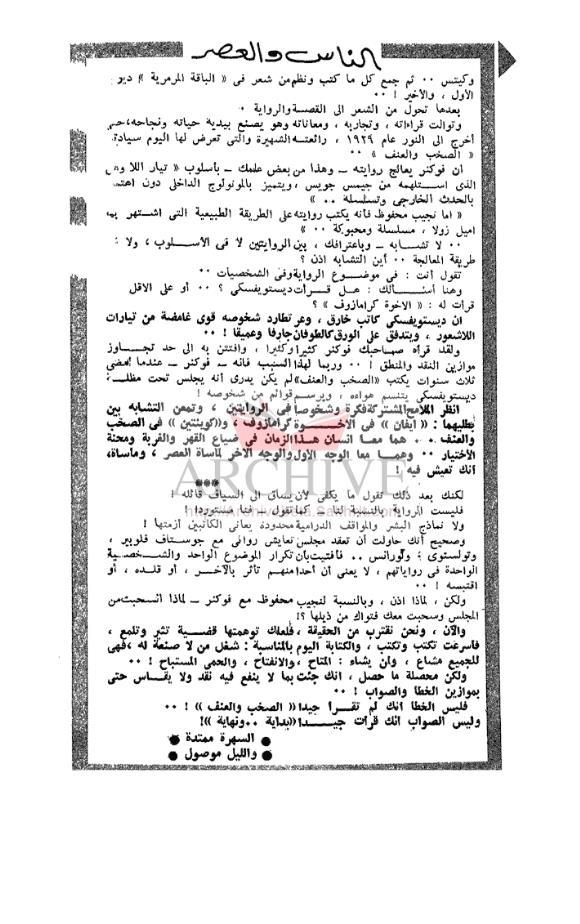 الناس والعصر
وكيتس ٠٠ ثم جمع كل ما كتب ونظم من شعر فى « الباقة المرمرية » ديو
الأول ، والأخير ! ٠٠
بعدها تحول من الشعر الى القصة والرواية ٠
وتوالت قراءاته ، وتجاربه ، ومعاناته وهو يصنع بيديه حياته ونجاحه،حتى
أخرج الى النور عام ١٩٢٩ ، رائعته الشهيرة والتى تعرض لها اليوم سيادتك
« الصخب والعنف » ٠٠
ان فوكنر يعالج روايته ــ وهذا من بعض علمك ــ بأسلوب « تيار اللا وعى
الذى استلهمه من جيمس جويس ، ويتميز بالمونولوج الداخلى دون اهتمام
بالحدث الخارجى وتسلسله .. »
« اما نجيب محفوظ فانه يكتب روايته على الطريقة الطبيعية التى اشتهر بها
اميل زولا ، مسلسلة ومحبوكة ٠٠ »
٠٠ لا تشابه ــ وباعترافك ، بين الروايتين لا فى الأسلوب ، ولا
طريقة المعالجة ٠٠ أين التشابه اذن ؟
تقول أنت : فى موضوع الرواية وفى الشخصيات ٠٠
وهنا أسألك : هل قرأت ديستويفسكى ؟ ٠٠ أو على الاقل
قرأت له : « الاخوة كرامازوف » ؟
ان ديستويفسكى كاتب خارق ، وعر تطارد شخوصه قوى غامضة من تيارات
اللاشعور ، ويتدفق على الورق كالطوفان جارفا وعميقا ! ٠٠
ولقد قرأه صاحبك فوكنر كثيرا وكثيرا ، وافتتن به الى حد تجاوز
موازين النقد والمنطق ! ٠٠ وربما لهذا السبب فانه ــ فوكنر ــ عندما أمضى
ثلاث سنوات يكتب «الصخب والعنف» لم يكن يدرى أنه يجلس تحت مظلة
ديستويفسكى يتنسم هواءه ، ويرسم قوائم من شخوصه !
انظر الملامح المشتركة فكرة وشخوصا فى الروايتين ، وتمعن التشابه بين
بطليهما : « ايفان » فى الاخوة كرامازوف ، و«كوينتين » فى الصخب
والعنف .. هما معا انسان هذا الزمان فى ضياع القهر والغربة ومحنة
الأختيار ٠٠ وهما معا الوجه الأول والوجه الآخر لمأساة العصر ، ومأساة،
انك تعيش فيه !
ARCHIVE
***
لكنك بعد ذلك تقول ما يكفى لأن يساق الى السياف قائله !
فليست الرواية بالنسبة لنا ــ كما تقول ــ فنا مستوردا !
ولا نماذج البشر والمواقف الدرامية محدودة يعانى الكاتبين أزمتها !
وصحيح أنك حاولت أن تعقد مجلس تعايش روائى مع جوستاف فلوبير ،
وتولستوى ؛ ولورانس .. فأفتيت بأن تكرار الموضوع الواحد والشخصية
الواحدة فى رواياتهم ، لا يعنى أن أحدا منهم تأثر بالآخر ، أو قلده ، أو
اقتبسه ! ٠٠
ولكن ، لماذا اذن ، وبالنسبة لنجيب محفوظ مع فوكنر ــ لماذا انسحبت من
المجلس وسحبت معك فتواك من ذيلها ؟!
والآن ، ونحن نقترب من الحقيقة ، فلعلك توهمتها قضية تثير وتلمع ،
فأسرعت تكتب وتكتب ، والكتابة اليوم بالمناسبة : شغل من لا صنعة له ، فهى
للجميع مشاع ، وان يشاء : المتاح ، والانفتاح ، والحمى المستباح ! ٠٠
ولكن محصلة ما حصل ، انك جئت بما لا ينفع فيه نقد ولا يقاس حتى
بموازين الخطأ والصواب ! ٠٠
فليس الخطأ انك لم تقرأ جيدا « الصخب والعنف » ! ٠٠
وليس الصواب انك قرأت جيدا «بداية ..ونهاية »!
● السهرة ممتدة ●
● والليل موصول ●